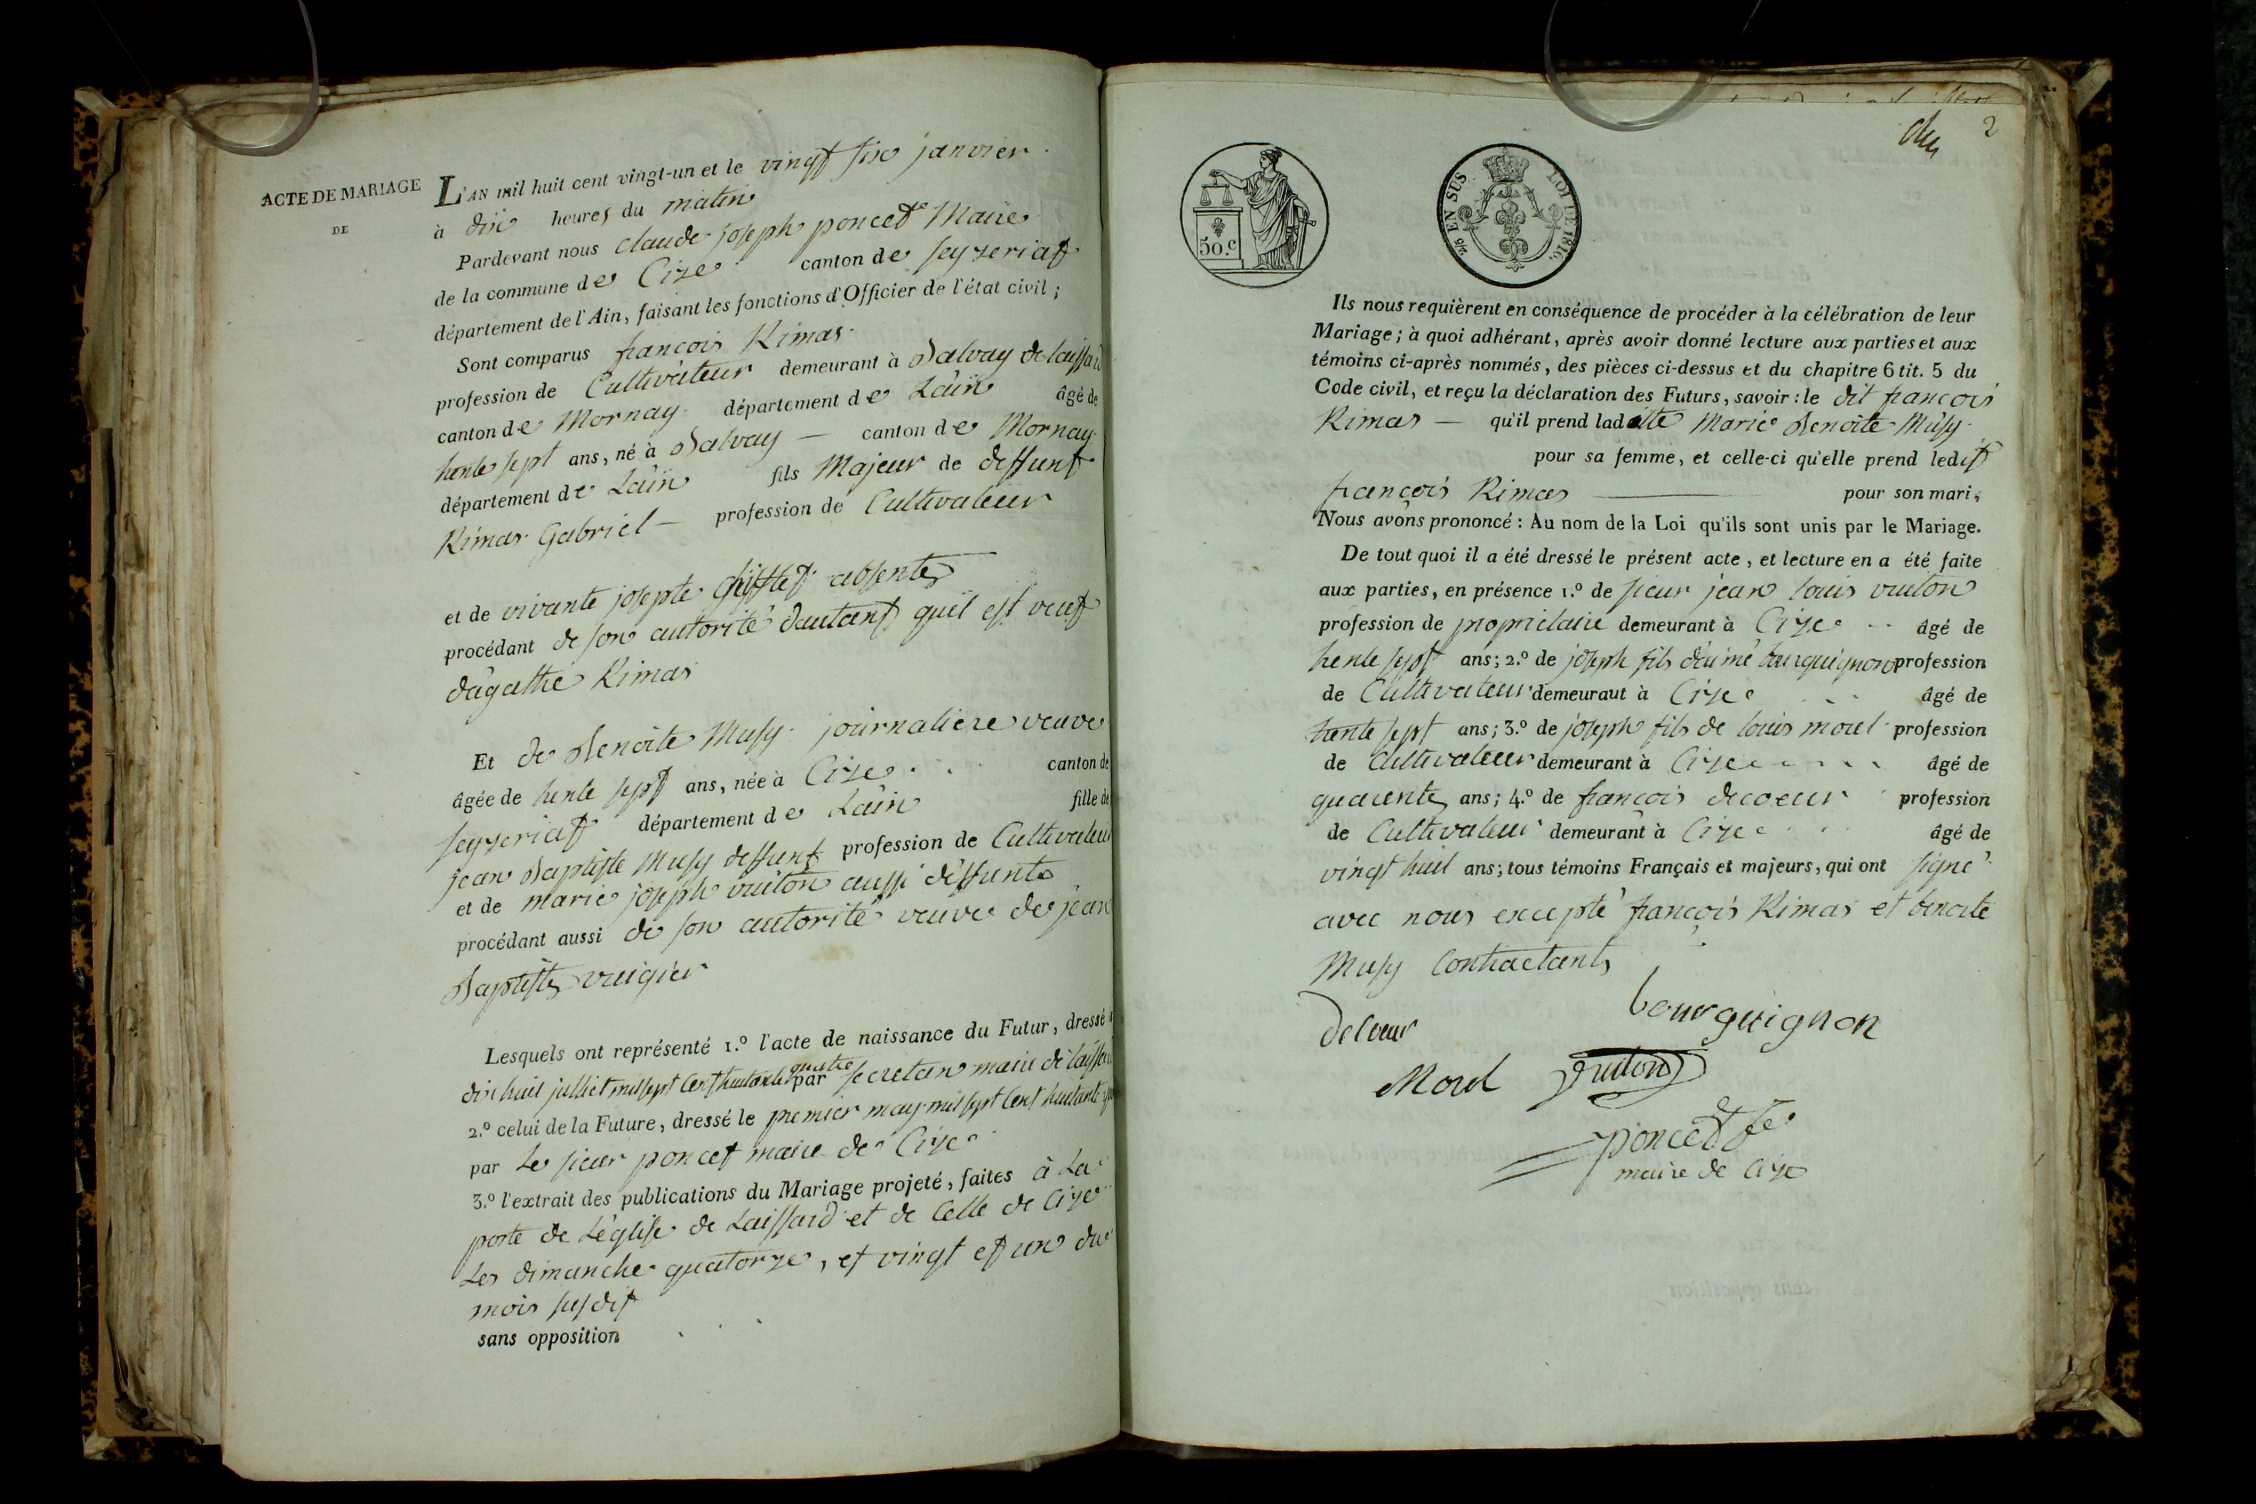 ACTE DE MARIAGE
DE
L'AN mil huit cent vingt-un et le vingt six janvier
à dix heures du matin
Pardevant nous claude joseph poncet Maire
de la commune de Cize canton de seyzeriat
département de l'Ain, faisant les fonctions d'Officier de l'état civil ;
Sont comparus françois Rimas
profession de Cultivateur demeurant à Salvay de laissard
canton de Mornay département de Lain âgé de
trente sept ans, né à Salvay — canton de Mornay
département de Lain fils Majeur de deffunt
Rimas Gabriel — profession de Cultivateur
et de vivante josepte absente
procédant de son autorité dautant quil est veuf
dâgathe Rimas
Et de Benoite Musy journaliere veuve
âgée de trente sept ans, née à Cize canton de
seyzeriat département de Lain fille de
jean Baptiste Musy deffunt profession de Cultivateur
et de marie joseph vuiton aussi deffunte
procédant aussi de son autorité veuve de jean
Baptiste vuigier
Lesquels ont représenté 1.º l'acte de naissance du Futur, dressé
dix huit julliet mil sept Cent huitante quatre par secretan maire de laissard
2.º celui de la Future, dressé le premier may mil sept Cent huitante
par Le sieur poncet maire de Cize
3.º l'extrait des publications du Mariage projeté, faites à La
porte de Léglise de Laissard et de Celle de Cize
Les dimanche quatorze, et vingt et un du
mois susdit
sans opposition
2
50.c
EN SUS
LOI DE 1816.
Ils nous requièrent en conséquence de procéder à la célébration de leur
Mariage ; à quoi adhérant, après avoir donné lecture aux parties et aux
témoins ci-après nommés, des pièces ci-dessus et du chapitre 6 tit. 5 du
Code civil, et reçu la déclaration des Futurs, savoir : le dit françois
Rimas — qu'il prend ladite Marie Benoite Musy
pour sa femme, et celle-ci qu'elle prend ledit
françois Rimas — pour son mari ;
Nous avons prononcé : Au nom de la Loi qu'ils sont unis par le Mariage.
De tout quoi il a été dressé le présent acte, et lecture en a été faite
aux parties, en présence 1.º de sieur jean louis vuiton
profession de propriétaire demeurant à Cize âgé de
trente sept ans ; 2.º de joseph fils daimé bourguignon profession
de Cultivateur demeuraut à Cize âgé de
trente sept ans ; 3.º de joseph fils de louis morel profession
de Cultivateur demeurant à Cize âgé de
quarente ans ; 4.º de françois decoeur profession
de Cultivateur demeurant à Cize âgé de
vingt huit ans ; tous témoins Français et majeurs, qui ont signé
avec nous excepté françois Rimas et benoite
Musy Contractants
bourguignon
DeCoeur
Morel vuiton
poncet
maire de Cize